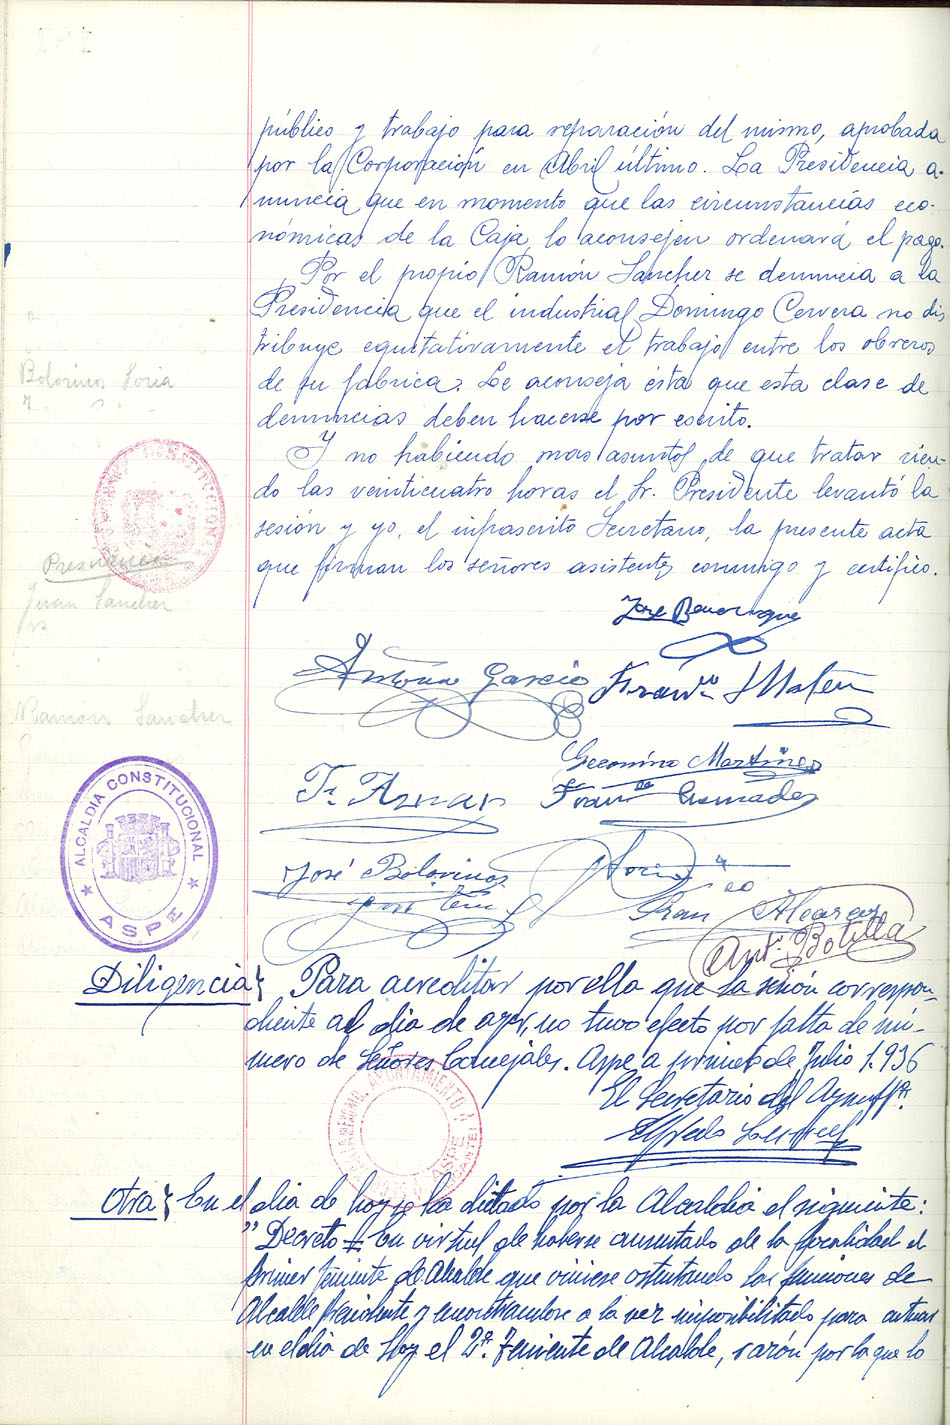 público y trabajo para reparación del mismo, aprobada
por la Corporación en Abril último. La Presidencia a-
nuncia que en momento que las circunstancias eco-
nómicas de la Caja lo aconsejen ordenará el pago.
Por el propio Ramón Sancher se denuncia a la
Presidencia que el industrial Domingo Cervera no dis
tribuye equitativamente el trabajo entre los obreros
de su fabrica. Le aconseja ésta que esta clase de
denuncias deben hacerse por escrito.
Y no habiendo mas asuntos de que tratar sien-
do las veinticuatro horas el Sr. Presidente levantó la
sesión y yo, el infrascrito Secretario, la presente acta
que firman los señores asistentes conmigo y certifico.
Bolorinos Soria
Presidencia
Juan Sancher
Ramón Sancher
Antonio García
Geronimo Martinez
Fr. Aznar
José Bolorinos
Fran Alcaraz
Antº Botella
ALCALDIA CONSTITUCIONAL
ASPE
Diligencia} Para acreditar por ella que la sesión correspon-
diente al dia de ayer, no tuvo efecto por falta de nú-
mero de Señores Concejales. Aspe a de Julio 1.936
El Secretario del Ayuntº.
AYUNTAMIENTO
ASPE
Otra} En el dia de hoy se ha dictado por la Alcaldia el siguiente:
"Decreto = En virtud de haberse ausentado de la localidad el
primer Teniente de Alcalde que viniese ostentando las funciones de
Alcalde Presidente y encontrandose a la vez imposibilitado para actuar
en el dia de Hoy el 2º. Teniente de Alcalde, razón por la que lo